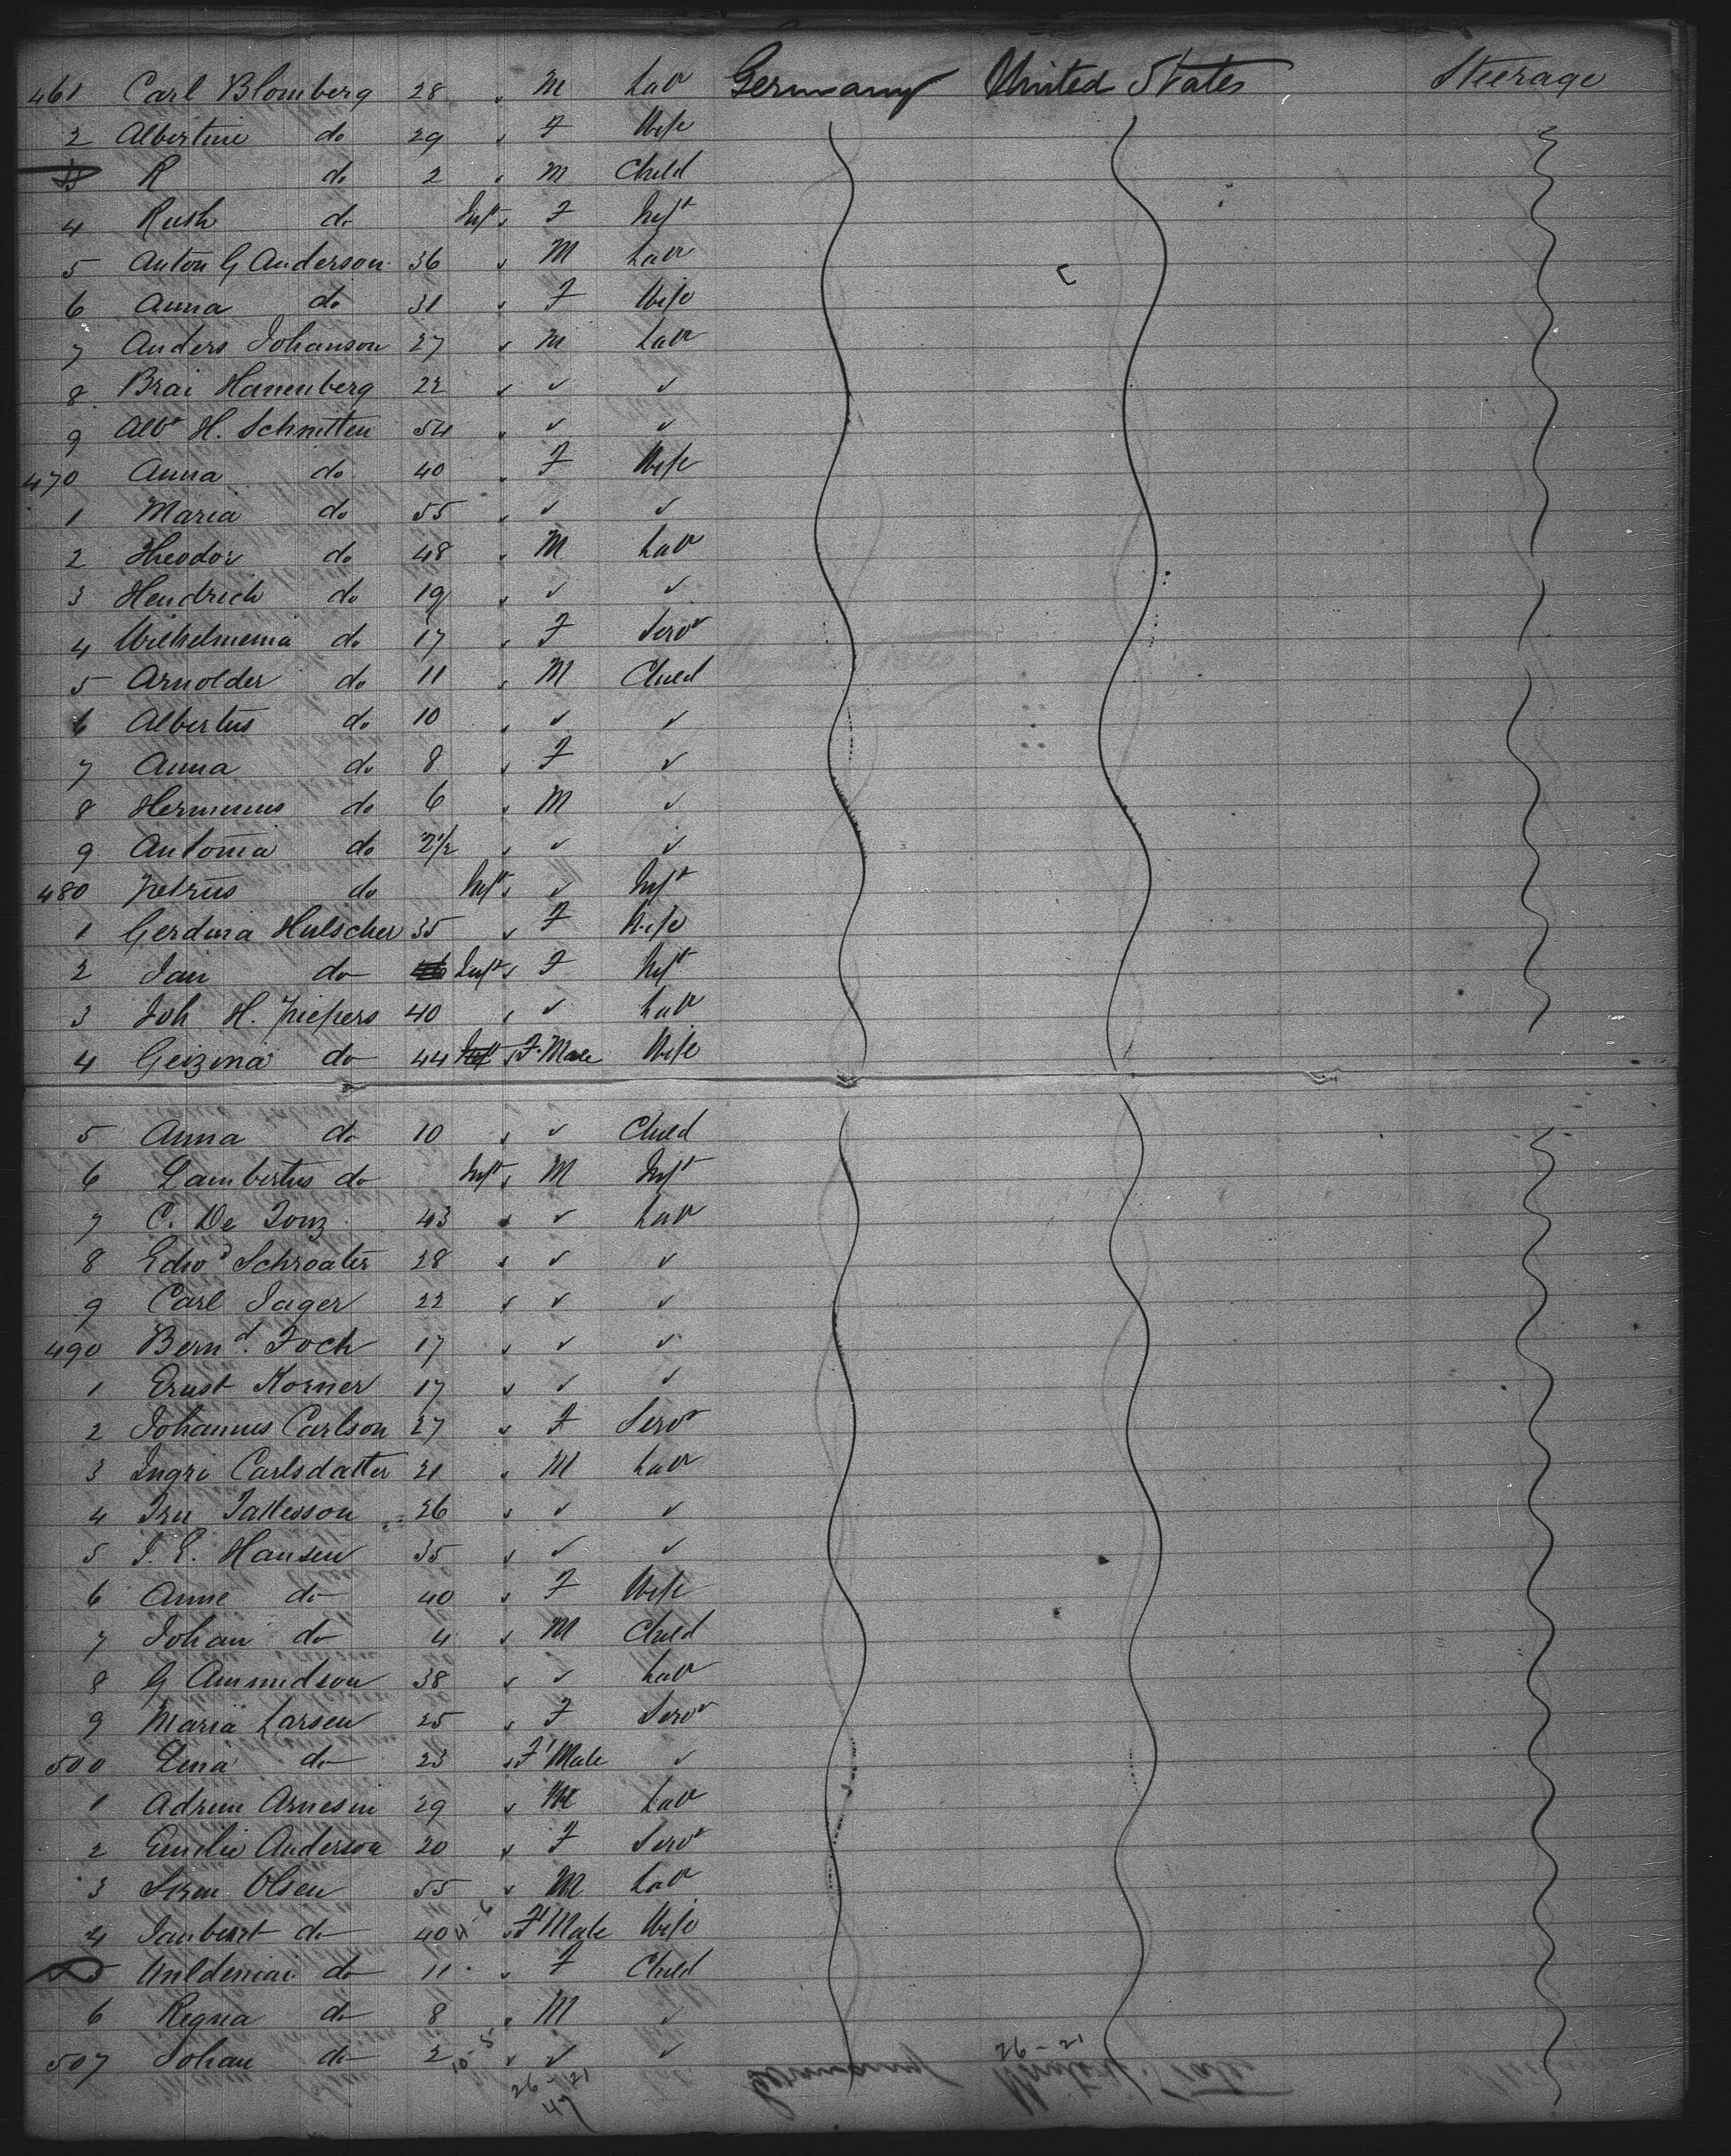 461 Carl Blomberg 28 " M Lab Germany United States Steerage
2 Albertine do 29 " F Wife
3 R do 2 " M Child
4 Ruth do Inft " F Inft
5 Anton G Anderson 36 " M Lab
6 Anna do 31 " F Wife
7 Anders Johanson 27 " M Lab
8 Brai Hanenberg 22 " " "
9 Albt H. Schmitten 54 " " "
470 Anna do 40 " F Wife
1 Maria do 55 " " "
2 Theodor do 48 " M Lab
3 Hendrich do 19 " " "
4 Wilhelmema do 17 " F Servt
5 Arnolder do 11 " M Child
6 Albertus do 10 " " "
7 Anna do 8 " F "
8 Hermenus do 6 " M "
9 Antonia do 2 1/2 " " "
480 Petrus do Inft " " Inft
1 Gerdina Hulscher 35 " F Wife
2 Jan do Inft " F Inft
3 Joh H. Piepers 40 " " Lab
4 Geizina do 44 Inft " F. Male Wife
5 Anna do 10 " " Child
6 Lambertus do Inft " M Inft
7 C. De Jong 43 " " Lab
8 Edwd Schroater 28 " " "
9 Carl Jager 22 " " "
490 Bernd. Foch 17 " " "
1 Ernst Korner 17 " " "
2 Johannes Carlson 27 " F Servt
3 Ingri Carlsdatter 21 " M Lab
4 26 " " "
5 J. E. Hansen 35 " " "
6 Anne do 40 " F Wife
7 Johan do 4 " M Child
8 G Ammudson 38 " " Lab
9 Maria Larsen 25 " F Servt
500 Lena do 23 " F Male "
1 Adrim Arnesen 29 " M Lab
2 Emilie Anderson 20 " F Servt
3 Olsen 55 " M Lab
4 do 40 " F Male Wife
5 do 11 " F Child
6 Regna do 8 " M "
507 Johan do 2 10-5 " " " 26-21
26-21
47